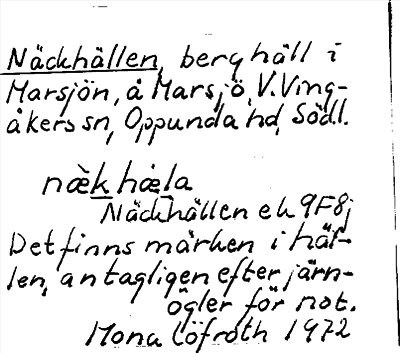 Näckhällen, berghäll i
Marsjön, å Marsjö, V. Ving-
åkers sn, Oppunda hd, Södl.
næ̀khæla
Näckhällen ek 9F8j
Det finns märken i häl-
len, antagligen efter järn-
öglor för not.
Mona Löfroth 1972